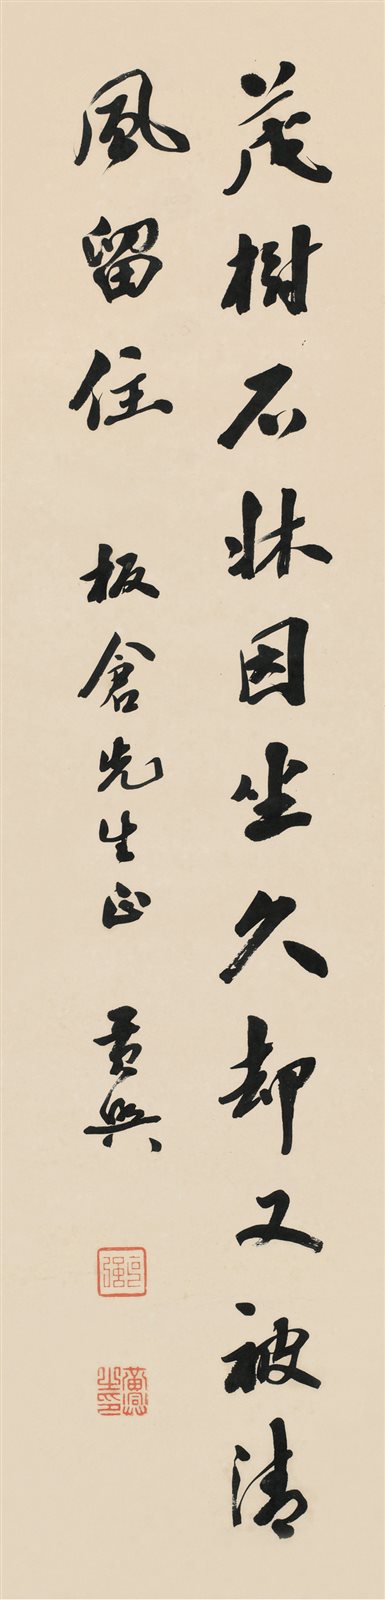 茂樹石牀因坐久却又被清
風留住 板倉先生正 黃興
克強
黃興之印